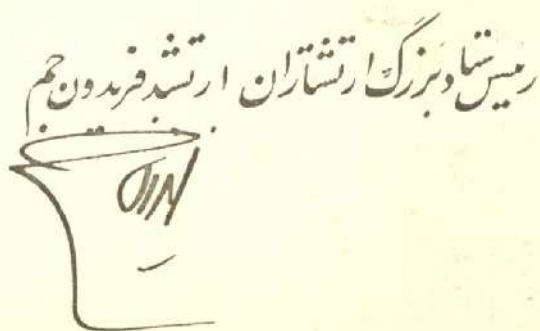 رئیس ستاد بزرگ ارتشتاران ارتشبد فریدون جم